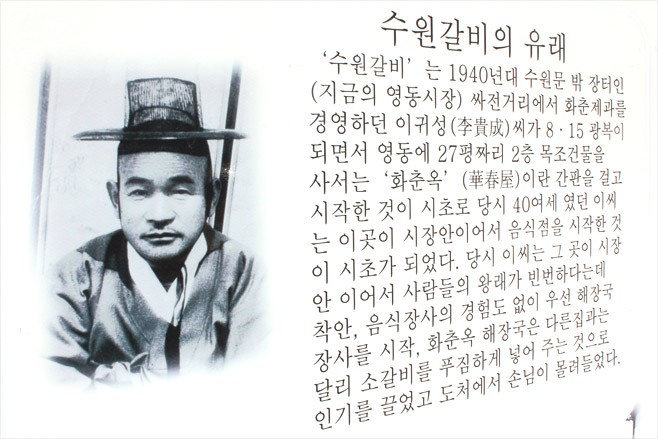 수원갈비의 유래
‘수원갈비’는 1940년대 수원문 밖 장터인
(지금의 영동시장) 싸전거리에서 화춘제과를
경영하던 이귀성(李貴成)씨가 8·15 광복이
되면서 영동에 27평짜리 2층 목조건물을
사서는 ‘화춘옥’(華春屋)이란 간판을 걸고
시작한 것이 시초로 당시 40여세 였던 이씨
는 이곳이 시장안이어서 음식점을 시작한 것
이 시초가 되었다. 당시 이씨는 그 곳이 시장
안 이어서 사람들의 왕래가 빈번하다는데
착안, 음식장사의 경험도 없이 우선 해장국
장사를 시작, 화춘옥 해장국은 다른집과는
달리 소갈비를 푸짐하게 넣어 주는 것으로
인기를 끌었고 도처에서 손님이 몰려들었다.